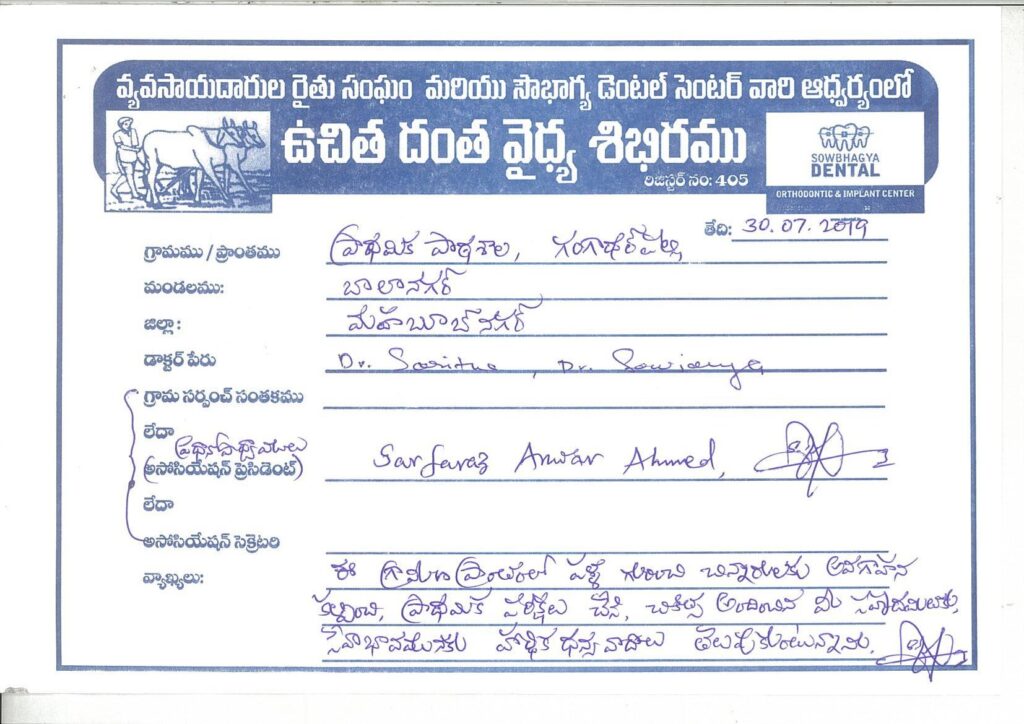 వ్యవసాయదారుల రైతు సంఘం మరియు సౌభాగ్య డెంటల్ సెంటర్ వారి ఆధ్వర్యంలో
ఉచిత దంత వైద్య శిభిరము
రిజిస్టర్ నం: 405
SOWBHAGYA
DENTAL
ORTHODONTIC & IMPLANT CENTER
తేది: 30.07.2019
గ్రామము / ప్రాంతము ప్రాథమిక పాఠశాల, గంగాధర్ పల్లి
మండలము: బాలానగర్
జిల్లా: మహబూబ్ నగర్
డాక్టర్ పేరు Dr. Saritha, Dr. Sowjanya
గ్రామ సర్పంచ్ సంతకము
లేదా ప్రధానోపాధ్యాయులు
(అసోసియేషన్ ప్రెసిడెంట్) Sarfaraz Anwar Ahmed,
లేదా
అసోసియేషన్ సెక్రెటరి
వ్యాఖ్యలు: ఈ గ్రామీణ ప్రాంతంలో పళ్ళ గురించి చిన్నారులకు అవగాహన
కల్పించి, ప్రాథమిక పరీక్షలు చేసి, చికిత్స అందించిన మీ సహృదయులకు,
సేవాభావమునకు హార్థిక ధన్యవాదాలు తెలుపుకుంటున్నాను.